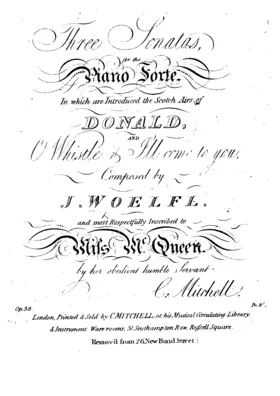 Three Sonatas,
for the
Piano Forte.
In which are Introduced the Scotch Airs of
DONALD,
AND
O Whistle & I'll come to you,
Composed by
J. WOELFL.
and most Respectfully Inscribed to
Miss Mc. Queen.
by her obedient humble Servant
C. Mitchell.
Op. 38.
London, Printed & Sold by C. MITCHELL, at his, Musical Circulating Library,
& Instrument Ware rooms, 51, Southampton Row, Russell Square.
(Remov'd from 26, New Bond Street.)